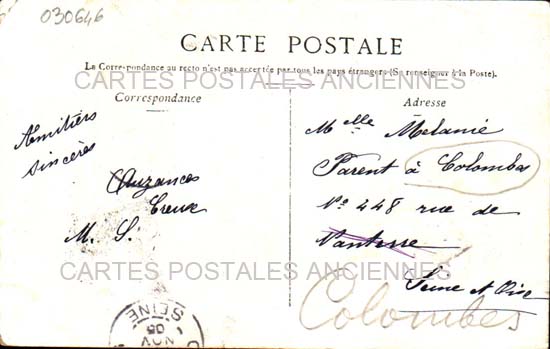 030646
CARTE POSTALE
La Correspondance au recto n'est pas acceptée par tous les pays étrangers (Se renseigner à la Poste).
CARTES POSTALES ANCIENNES
Correspondance
Amitiers
sincères
Auzances
Creuse
M. S.
Adresse
Melle Mélanie
Parent à Colombes
No 448 rue de
Nanterre
Seine et Oise
Colombes
CARTES POSTALES ANCIENNES
SEINE
NOV
05